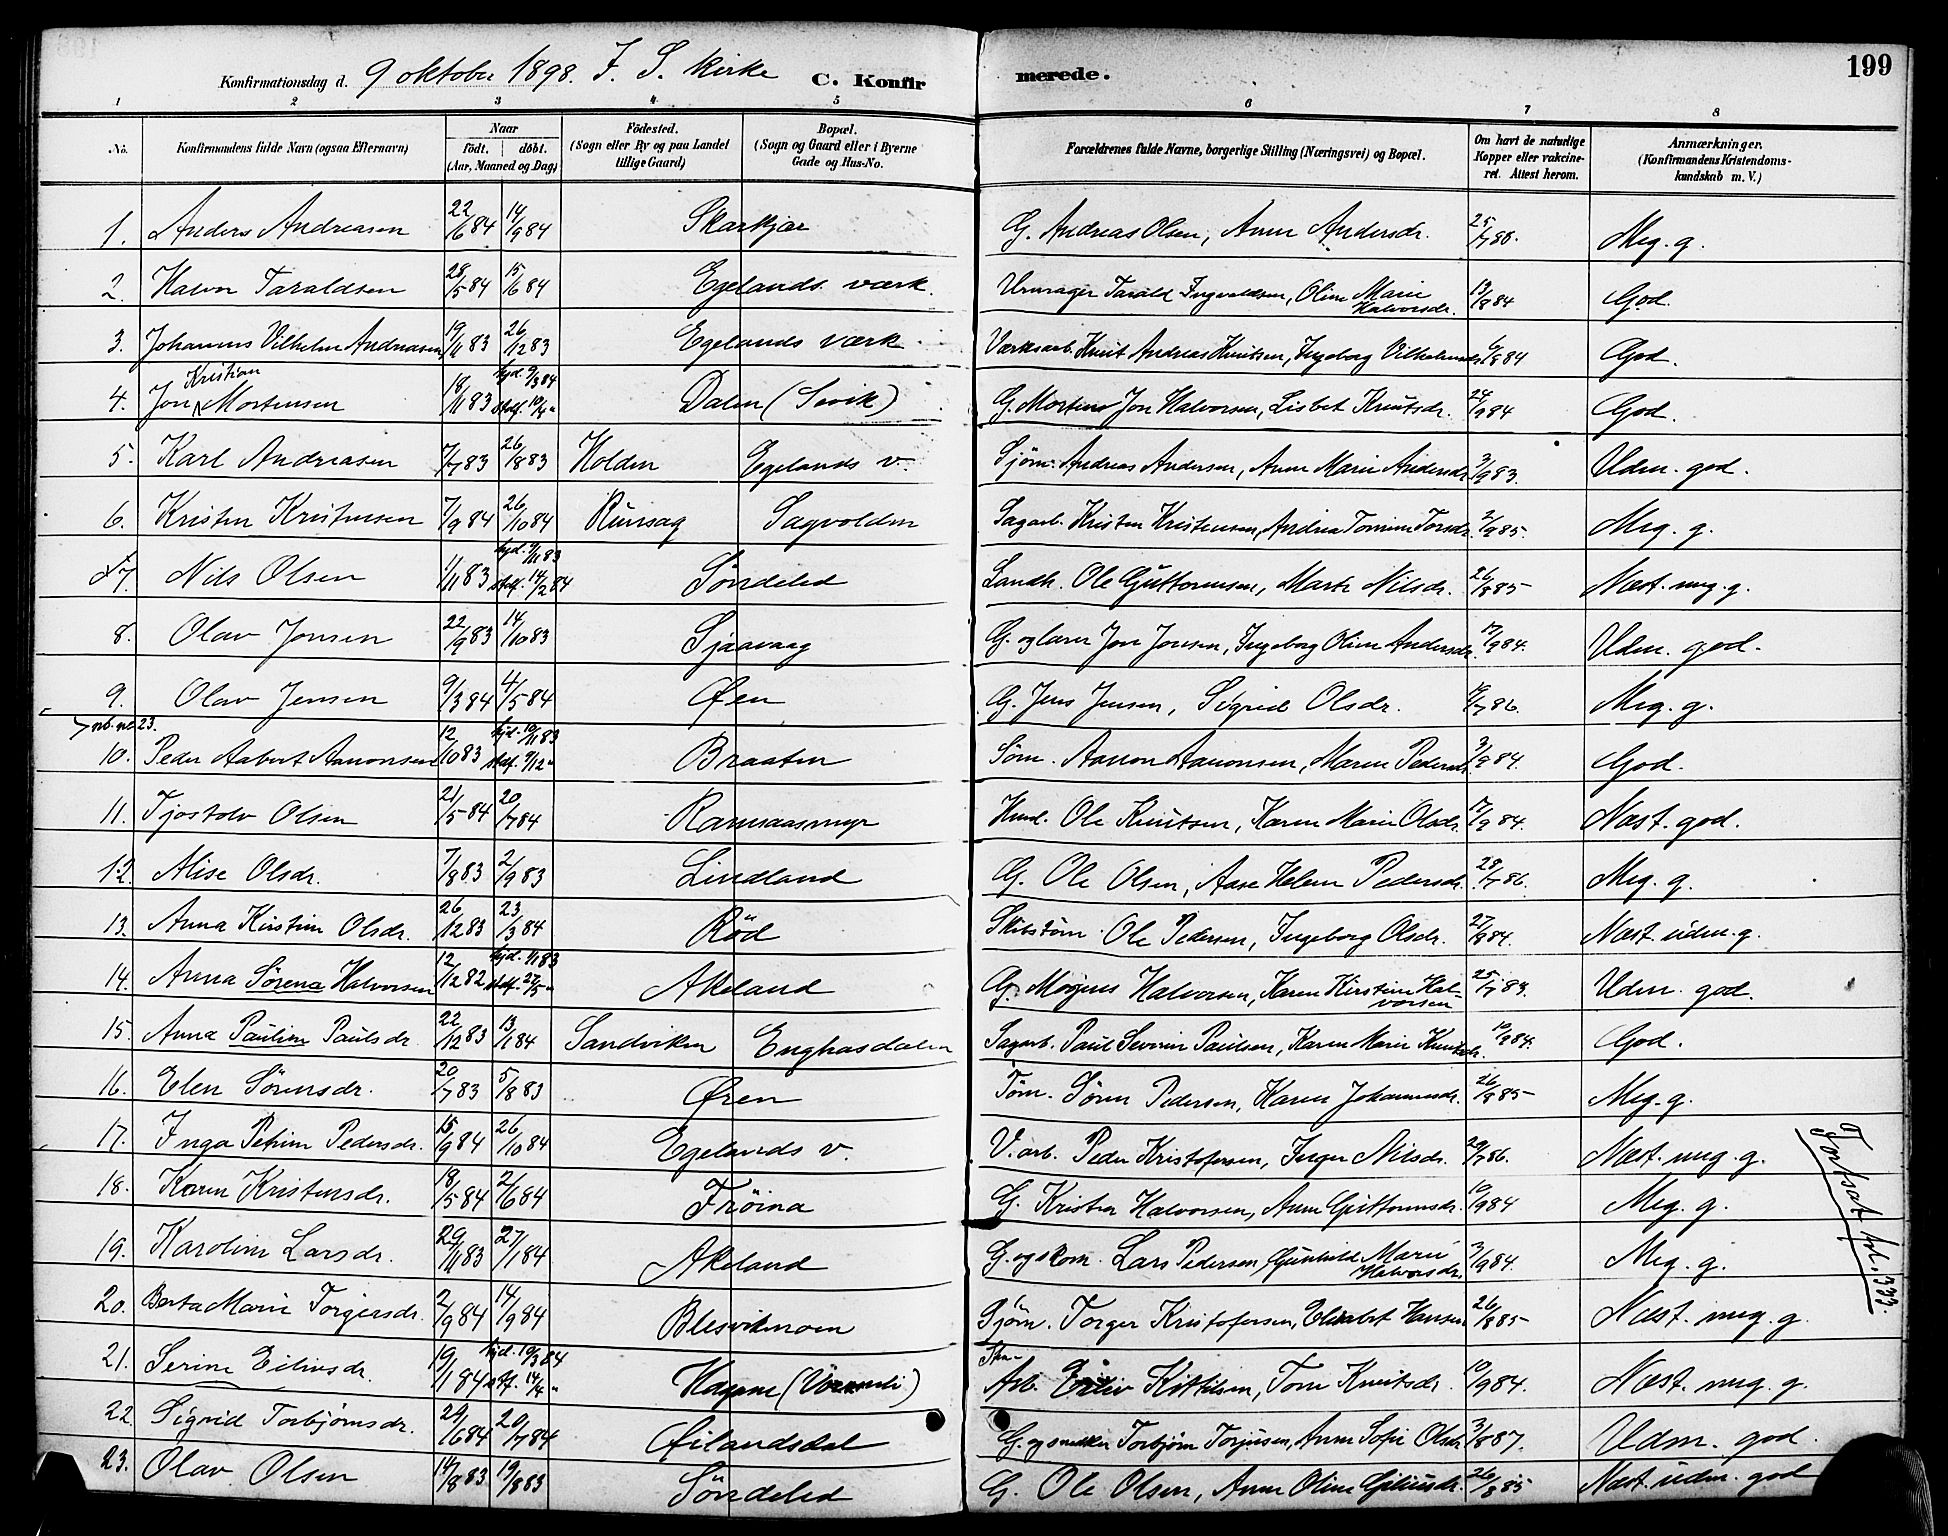 199
Konfirmationsdag d. 9 oktober 1898. I. S. kirke C. Konfirmerede.
1 2 3 4 5 6 7 8
No. Konfirmandens fulde Navn (ogsaa Efternavn) Naar født. døbt. (Aar, Maaned og Dag) Fødested. (Sogn eller By og paa Landet tillige Gaard) Bopæl. (Sogn og Gaard eller i Byerne Gade og Hus-No. Forældrenes fulde Navne, borgerlige Stilling (Næringsvei) og Bopæl. Om havt de naturlige Kopper eller vakcineret. Attest herom. Anmærkninger. (Konfirmandens Kristendomskundskab m. V.)
1. Anders Andreasen 22/6 84 14/9 84 Skarkjær G. Andreas Olsen, Anne Andersdr. 25/7 88. Meg. g.
2. Halvor Taraldsen 28/5 84 15/6 84 Egelands værk. Urmager Tarald Ingvaldsen, Oline Marie Halvorsdr. 13/8 84 God.
3. Johannes Vilhelm Andreasen 19/11 83 26/12 83 Egelands værk Værksarb. Knut Andreas Knutsen, Ingeborg Vilhelmsdr. 6/8 84 God.
4. Jon Kristian Mortensen 18/11 83 hjd. 9/3 84 stadf. 10/4 " Dalen (Sivik) G. Morten Jon Halvorsen, Lisbet Knutsdr. 24/9 84 God.
5. Karl Andreasen 7/7 83 26/8 83 Holden Egelands v. Sjøm. Andreas Andersen, Anne Marie Andersdr. 3/9 83. Udm. god.
6. Kristen Kristensen 7/9 84 26/10 84 Runsag Sagvolden Sagarb. Kristen Kristensen, Andrea Tomine Torsdr. 2/9 85. Meg. g.
7. Nils Olsen 1/11 83 hjd. 9/11 83 stadf. 14/2 84 Søndeled Landh. Ole Guttormsen, Marte Nilsdr. 26/8 85 Næst. meg. g.
8. Olav Jonsen 22/9 83 14/10 83 Sjaavaag G. og lærer Jon Jonsen, Ingeborg Oline Andersdr. 17/9 84. Udm. god.
9. Olav Jensen 9/3 84 4/5 84 Øen G. Jens Jensen, Sigrid Olsdr. 7 86. Meg. g.
nb. no. 23.
10. Peder Aabert Aanonsen 12/10 83 hjd. 10/11 83 stadf. 9/12 " Braaten Søm. Aanon Aanonsen, Maren Pedersdr. 3/9 84. God.
11. Tjostolv Olsen 21/5 84 20/7 84 Ramsaasmyr Husm. Ole Knutsen, Karen Marie Olsdr. 17/9 84. Næst. god.
12. Alise Olsdr. 7/8 83 2/9 83 Lindland G. Ole Olsen, Aase Helene Pedersdr. 28/7 86. Meg. g.
13. Anna Kirstine Olsdr. 26/12 83 23/3 84 Rød Skibstøm. Ole Pedersen, Ingeborg Olsdr. 27/8 84. Næst. udm. g.
14. Anna Sørena Halvorsen 12/12 82 hjd. 1/1 83 stadf. 27/5 " Akeland G. Mogens Halvorsen, Karen Kirstine Halvorsen 25/7 83. Udm. god.
15. Anna Pauline Paulsdr. 22/12 83 13/1 84 Sandviken Enghasdalen Sagarb. Paul Severin Paulsen, Karen Marie Knutsdr. 10/9 84. God.
16. Elen Sørensdr. 20/7 83 5/8 83 Øren Tøm. Søren Pedersen, Karen Johannesdr. 26/8 85 Meg. g.
17. Inga Petrine Pedersdr. 15/9 84 26/10 84 Egelands v. V. arb. Peder Kristofersen, Inger Nilsdr. 29/7 86. Næst. meg. g.
18. Karen Kristensdr. 18/5 84 2/6 84 Frøina G. Kristen Halvorsen, Anne Guttormsdr. 10/9 84 Meg. g.
19. Karoline Larsdr. 29/11 83 27/1 84 Akeland G. og skom. Lars Pedersen, Gunhild Marie Halvorsdr. 3/9 84. Meg. g.
20. Berta Marie Torgersdr. 2/9 84 14/9 84 Blesvikmoen Sjøm. Torger Kristofersen, Elisabet Hansen 26/8 85 Næst. meg. g.
21. Serine Eilivsdr. 19/1 84 hjd. 10/3 84 st.f. 14/4 " Hagene (Vormeli) Arb. Eiliv Kittilsen, Tone Knutsdr. 10/9 84. Næst. meg. g.
22. Sigrid Torbjørnsdr. 29/6 84 20/7 84 Øilandsdal G. og snekker Torbjørn Torjusen, Anne Sofie Olsdr. 3/8 87. Udm. god.
23. Olav Olsen 14/8 83 19/8 83 Søndeled G. Ole Olsen, Anne Oline Gjeliusdr. 26/8 85 Næst. udm. god
Fortsat fol. 233.